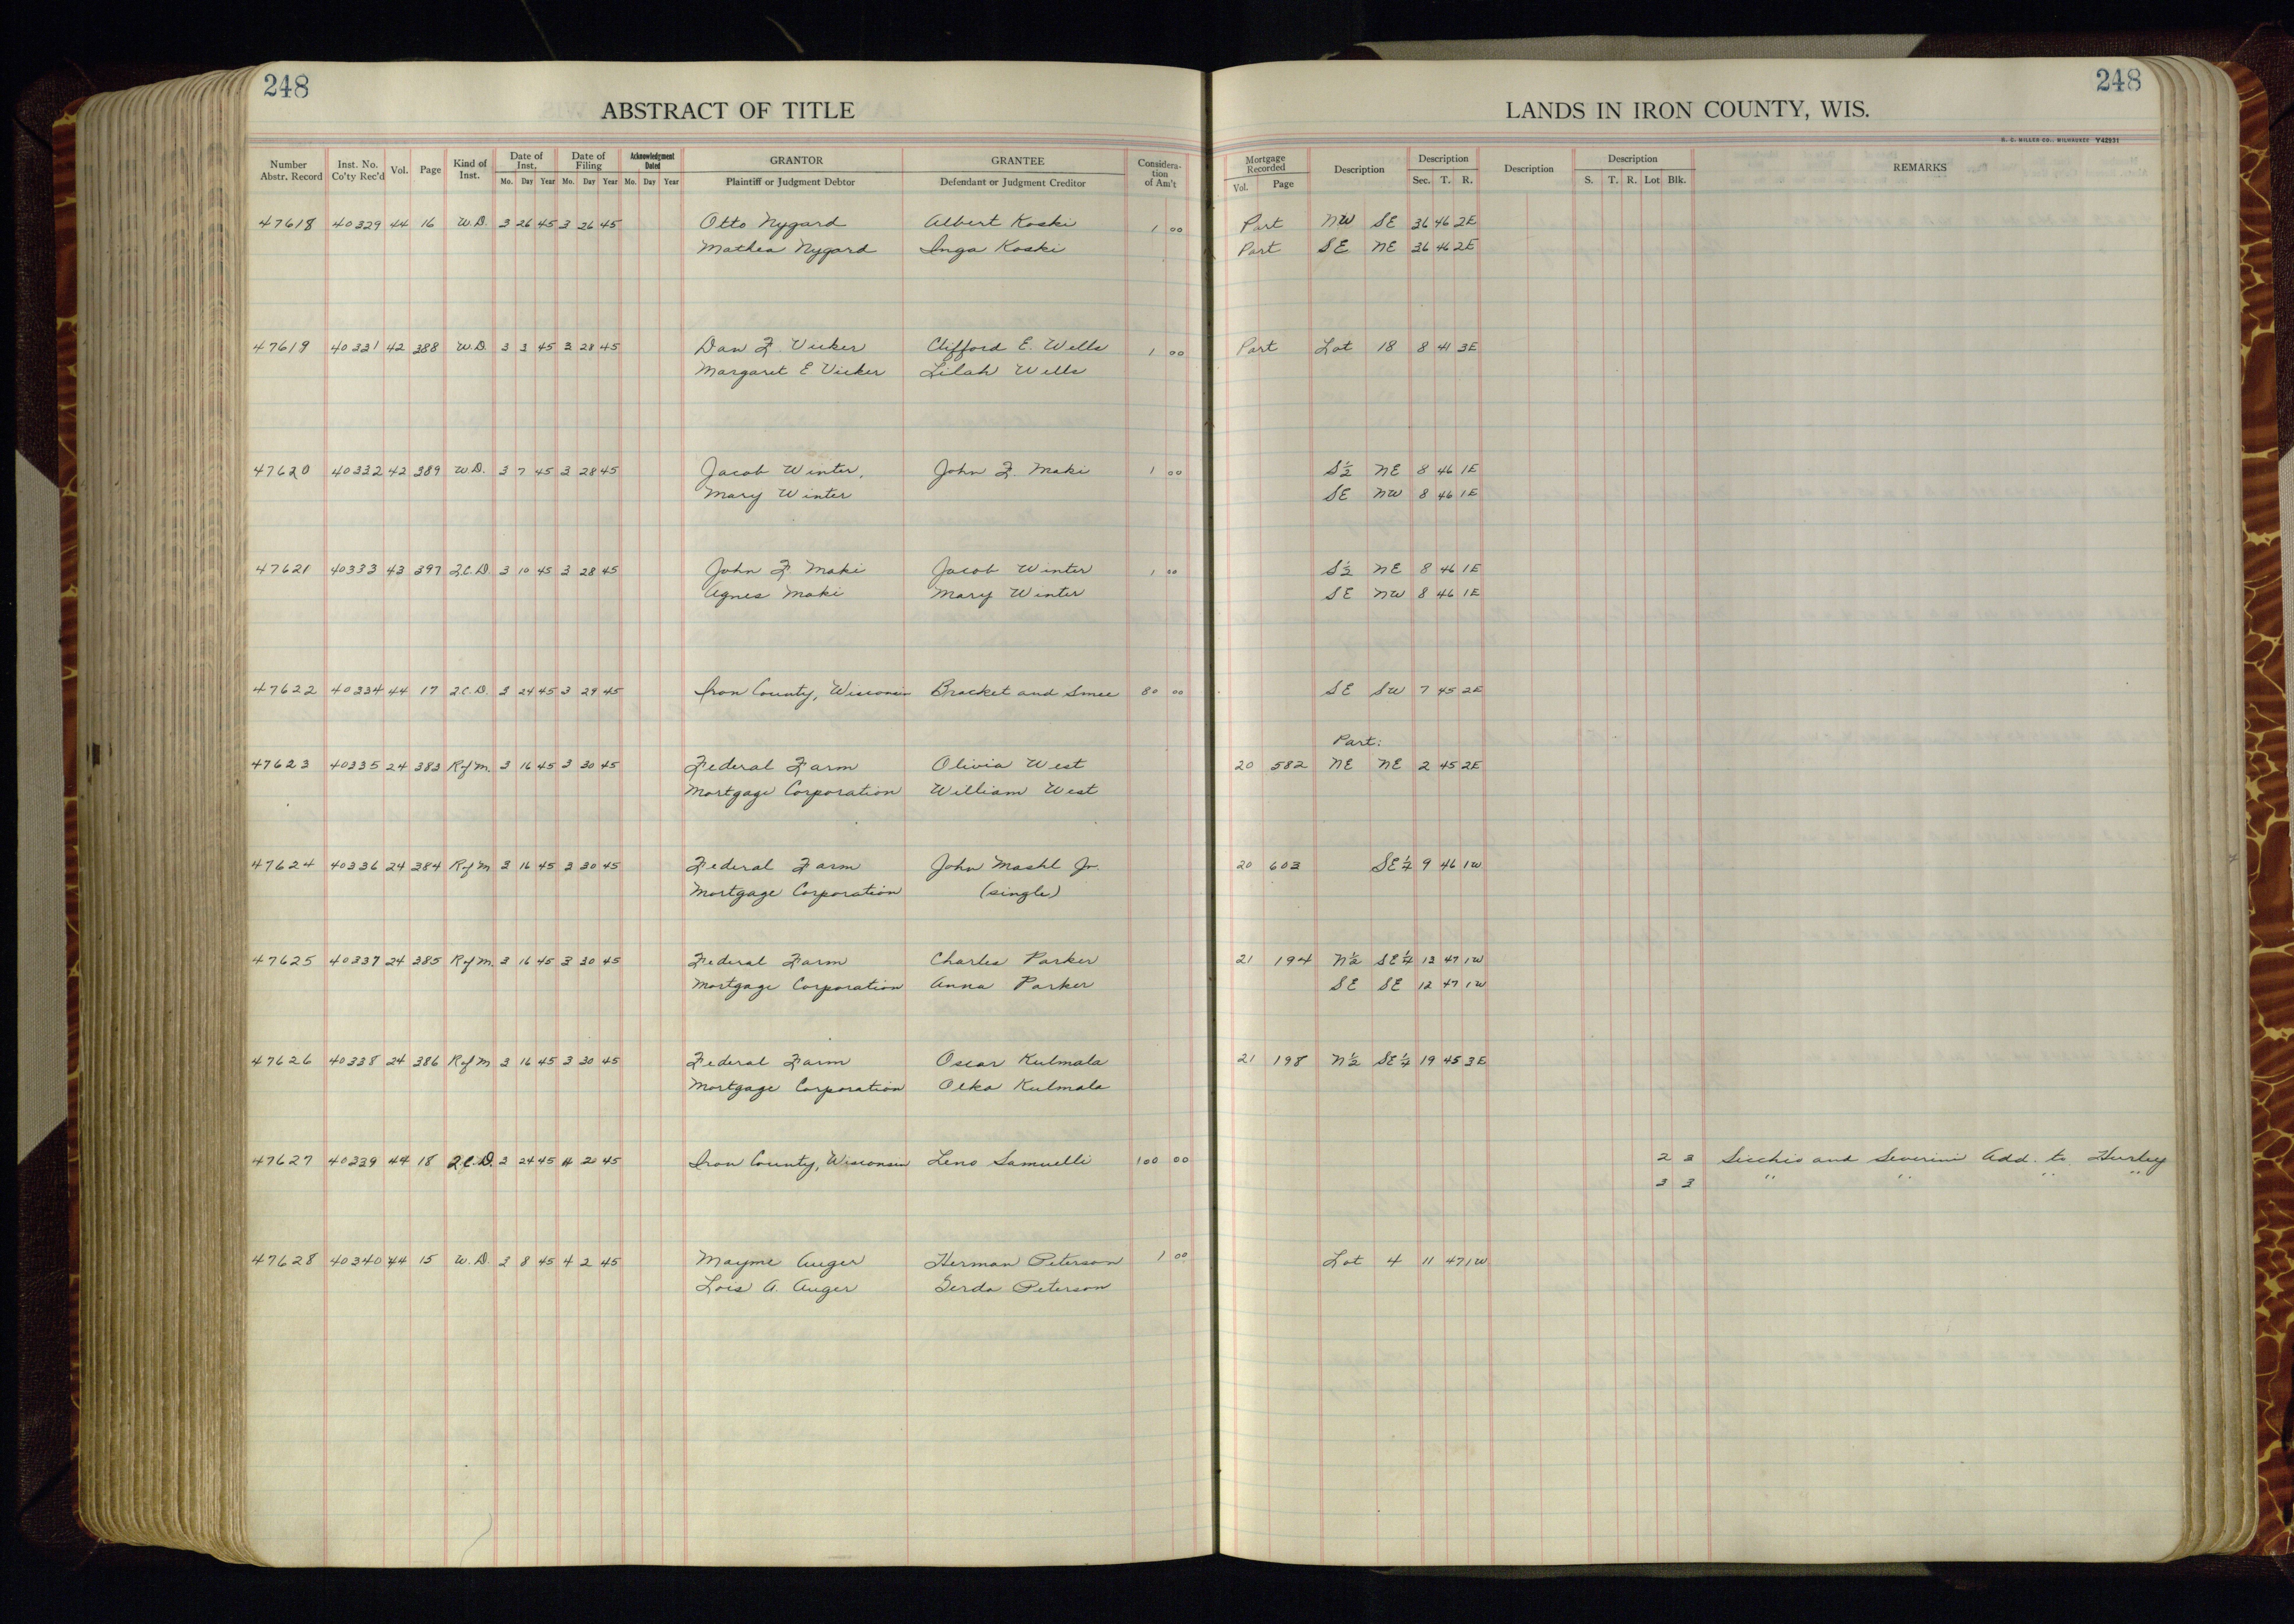 248
248
ABSTRACT OF TITLE
LANDS IN IRON COUNTY, WIS.
H. C. MILLER CO., MILWAUKEE Y42931
Number Abstr. Record Inst. No. Co'ty Rec'd Vol. Page Kind of Inst. Date of Inst. Mo. Day Year Date of Filing Mo. Day Year Acknowledgment Dated Mo. Day Year GRANTOR Plaintiff or Judgment Debtor GRANTEE Defendant or Judgment Creditor Considera-tion of Am't Mortgage Recorded Vol. Page Description Description Sec. T. R. Description Description S. T. R. Lot Blk. REMARKS
47618 40329 44 16 W.D. 3 26 45 3 26 45 Otto Nygard Albert Koski 1 00 Part NW SE 36 46 2E
Mathea Nygard Inga Koski Part SE NE 36 46 2E
47619 40331 42 388 W.D. 3 3 45 3 28 45 Dan F. Vicker Clifford E. Wells 1 00 Part Lot 18 8 41 3E
Margaret E Vicker Lilah Wells
47620 40332 42 389 W.D. 3 7 45 3 28 45 Jacob Winter, John F. Maki 1 00 S½ NE 8 46 1E
Mary Winter SE NW 8 46 1E
47621 40333 43 397 Q.C.D. 3 10 45 3 28 45 John F Maki Jacob Winter 1 00 S½ NE 8 46 1E
Agnes Maki Mary Winter SE NW 8 46 1E
47622 40334 44 17 Q.C.D. 3 24 45 3 29 45 Iron County, Wisconsin Bracket and Smee 80 00 SE SW 7 45 2E
Part:
47623 40335 24 383 Rofm. 3 16 45 3 30 45 Federal Farm Olivia West 20 582 NE NE 2 45 2E
Mortgage Corporation William West
47624 40336 24 384 Rofm 3 16 45 3 30 45 Federal Farm John Mashl Jr. 20 603 SE¼ 9 46 1W
Mortgage Corporation (single)
47625 40337 24 385 Rofm. 3 16 45 3 30 45 Federal Farm Charles Parker 21 194 N½ SE¼ 12 47 1W
Mortgage Corporation Anna Parker SE SE 12 47 1W
47626 40338 24 386 Rofm 3 16 45 3 30 45 Federal Farm Oscar Kulmala 21 198 N½ SE¼ 19 45 3E
Mortgage Corporation Kulmala
47627 40339 44 18 Q.C.D. 3 24 45 4 45 Iron County, Wisconsin Leno Samuelli 100 00 2 3 Sicchio and Severini Add. to Hurley
3 3 " " " "
47628 40340 44 15 W.D. 3 8 45 4 2 45 Mayme Auger Herman Peterson 1 00 Lot 4 11 47 1W
Lois A. Auger Gerda Peterson